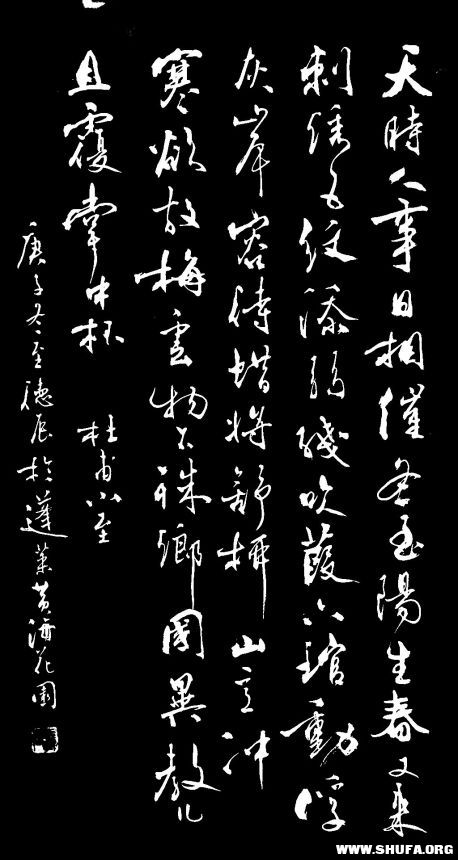 天時人事日相催冬至陽生春又来
刺绣五纹添弱綫吹葭六琯動浮
灰岸容待蜡将舒柳山意冲
寒欲放梅雲物不殊鄉國異教儿
且覆掌中杯 杜甫小至
庚子冬至德辰於蓬莱黄海花園
WWW.SHUFA.ORG